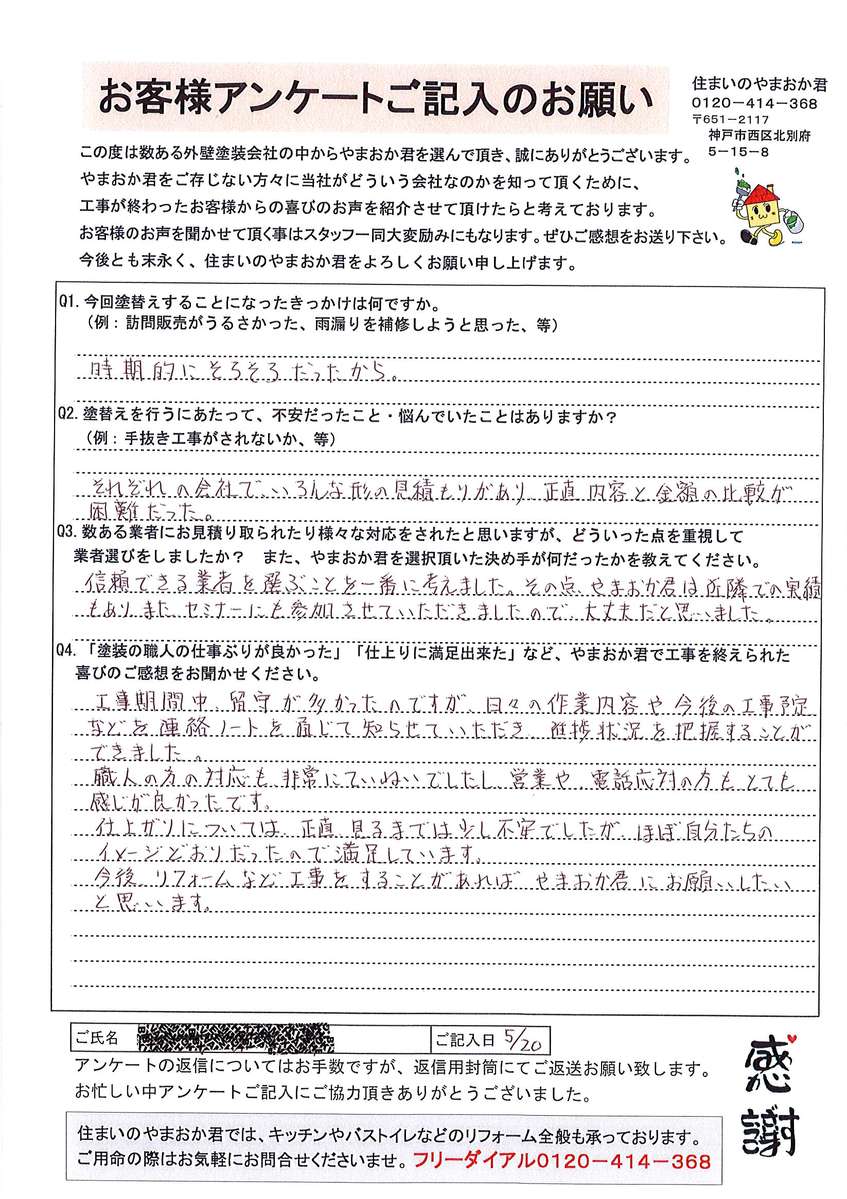 お客様アンケートご記入のお願い
住まいのやまおか君
0120-414-368
〒651-2117
神戸市西区北別府
5-15-8
この度は数ある外壁塗装会社の中からやまおか君を選んで頂き、誠にありがとうございます。
やまおか君をご存じない方々に当社がどういう会社なのかを知って頂くために、
工事が終わったお客様からの喜びのお声を紹介させて頂けたらと考えております。
お客様のお声を聞かせて頂く事はスタッフ一同大変励みにもなります。ぜひご感想をお送り下さい。
今後とも末永く、住まいのやまおか君をよろしくお願い申し上げます。
Q1. 今回塗替えすることになったきっかけは何ですか。
(例：訪問販売がうるさかった、雨漏りを補修しようと思った、等)
時期的にそろそろだったから。
Q2. 塗替えを行うにあたって、不安だったこと・悩んでいたことはありますか？
(例：手抜き工事がされないか、等)
それぞれの会社で、いろんな形の見積もりがあり、正直内容と金額の比較が
困難だった。
Q3. 数ある業者にお見積り取られたり様々な対応をされたと思いますが、どういった点を重視して
業者選びをしましたか？ また、やまおか君を選択頂いた決め手が何だったかを教えてください。
信頼できる業者を選ぶことを一番に考えました。その点、やまおか君は近隣での実績
もあり、また、セミナーにも参加させていただきましたので、大丈夫だと思いました。
Q4. 「塗装の職人の仕事ぶりが良かった」「仕上りに満足出来た」など、やまおか君で工事を終えられた
喜びのご感想をお聞かせください。
工事期間中、留守が多かったのですが、日々の作業内容や今後の工事予定
などを連絡ノートを通じて知らせていただき、進捗状況を把握することが
できました。
職人の方の対応も、非常にていねいでしたし、営業や、電話応対の方もとても
感じが良かったです。
仕上がりについては、正直、見るまでは少し不安でしたが、ほぼ自分たちの
イメージどおりだったので満足しています。
今後、リフォームなど工事をすることがあれば、やまおか君にお願いしたい
と思います。
ご氏名
ご記入日 5/20
アンケートの返信についてはお手数ですが、返信用封筒にてご返送お願い致します。
お忙しい中アンケートご記入にご協力頂きありがとうございました。
感謝
住まいのやまおか君では、キッチンやバストイレなどのリフォーム全般も承っております。
ご用命の際はお気軽にお問合せくださいませ。フリーダイアル0120-414-368